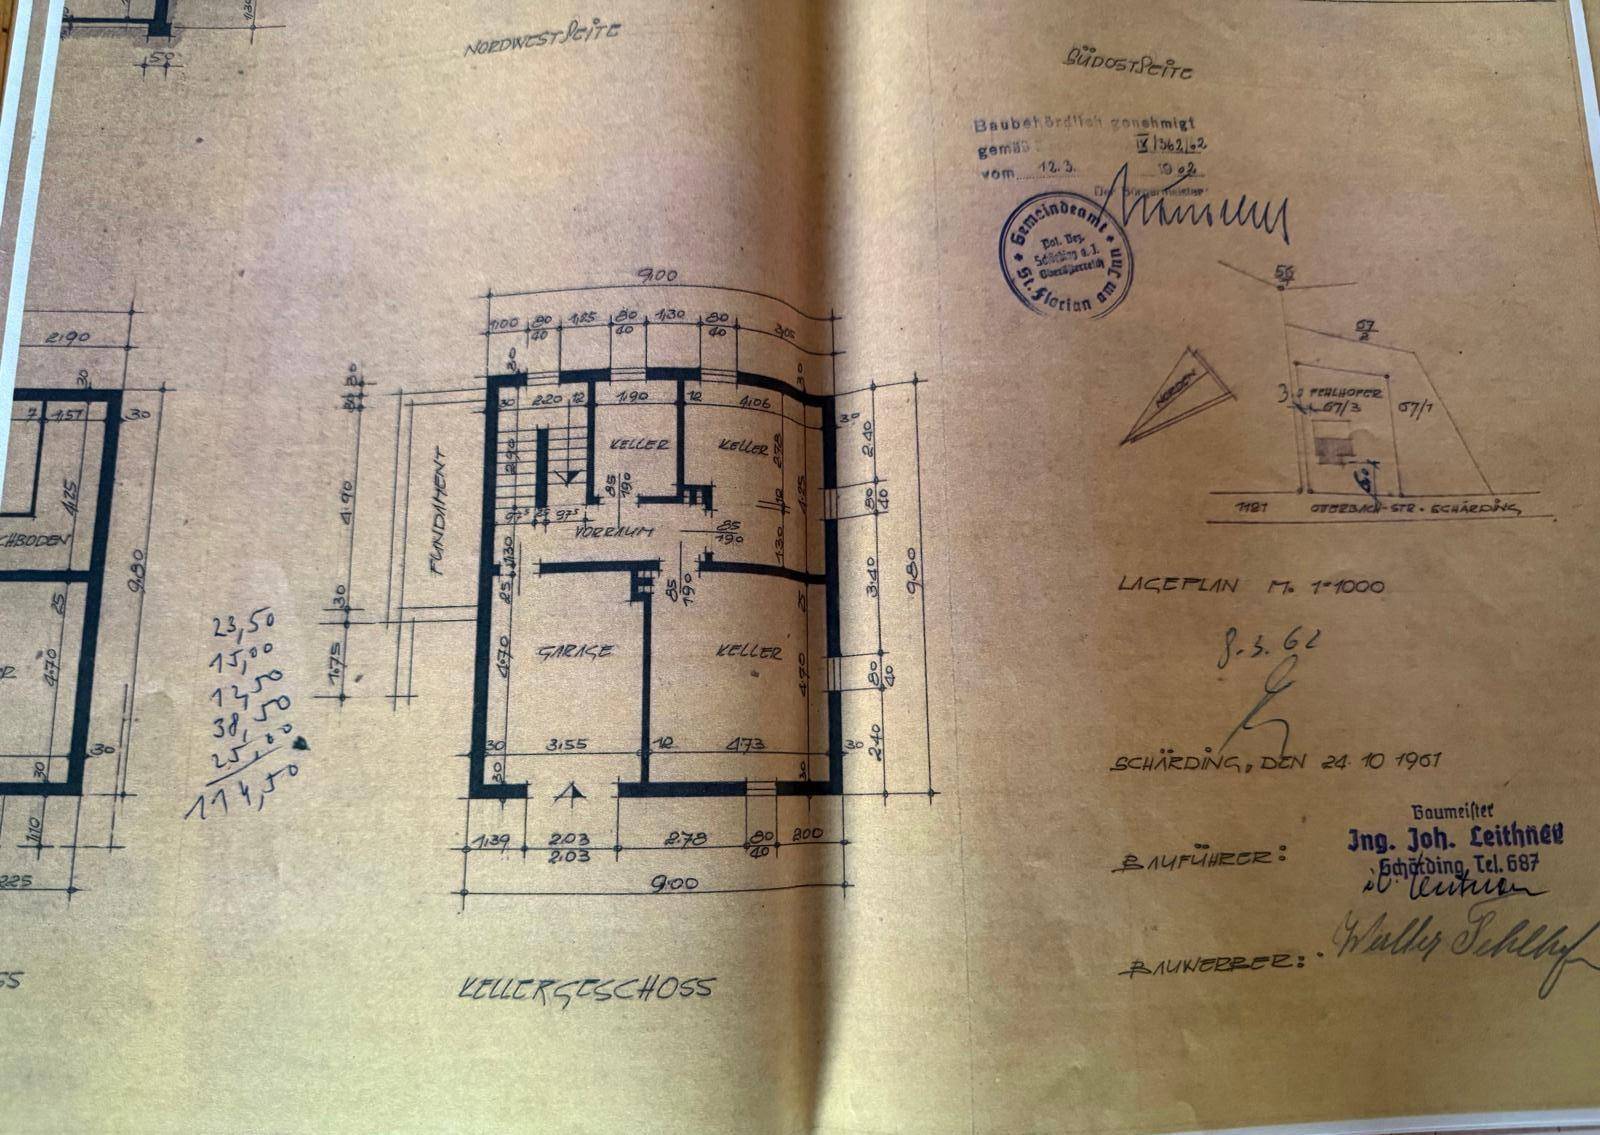 NORDWESTSEITE
SÜDOSTSEITE
Baubehördlich genehmigt
gemäß IX/362/62
vom 12.3. 1962
Der Bürgermeister
Gemeindeamt
Pol. Bez.
Schärding a. I.
Oberösterreich
St. Florian am Inn
50
2.90
30
7 1,57
30
4.25
CHBODEN
9.80
25
4.70
30
30
1.10
225
23,50
15,00
12,50
38,50
25,00
114,50
9.00
1.00 80/40 1.25 80/40 1.30 80/40 3.05
30
30
30
30
30 2.20 12 1.90 12 4.06
30
FUNDAMENT
4.90
30
1.75
2.90
KELLER
KELLER
2.78
85/190
97⁵ 25 97⁵
VORRAUM
85/190
12
4.25
1.30
1.30
85/190
25
25
2.40
80/40
3.40
9.80
80/40
2.40
4.70
GARAGE
KELLER
4.70
30 3.55 12 4.73 30
30
30
1.39 2.03/2.03 2.78 80/40 2.00
9.00
KELLERGESCHOSS
SS
NORDEN
67/2
67/3
67/1
1121
SCHÄRDING
LAGEPLAN M. 1=1000
8.3.62
SCHÄRDING, DEN 24.10.1961
BAUFÜHRER:
Baumeister
Ing. Joh. Leithner
Schärding, Tel. 687
BAUWERBER: